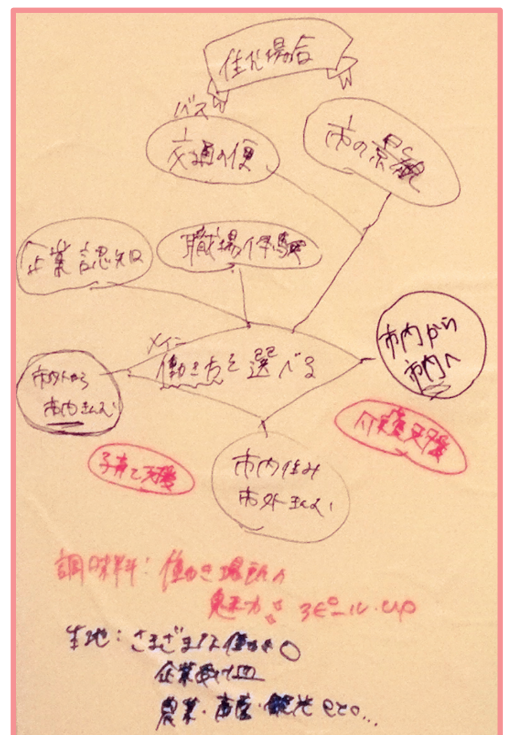 住む場合
バス
交通の便
市の景観
企業認知
職場体験
メイン
働き方を選べる
市内から
市内へ
市外から
市内
介護支援
子育て支援
市内住み
市外
調味料:働き場所の
魅力
ピール・up
生地:さまざまな働き方
企業
農業・畜産・観光 etc...